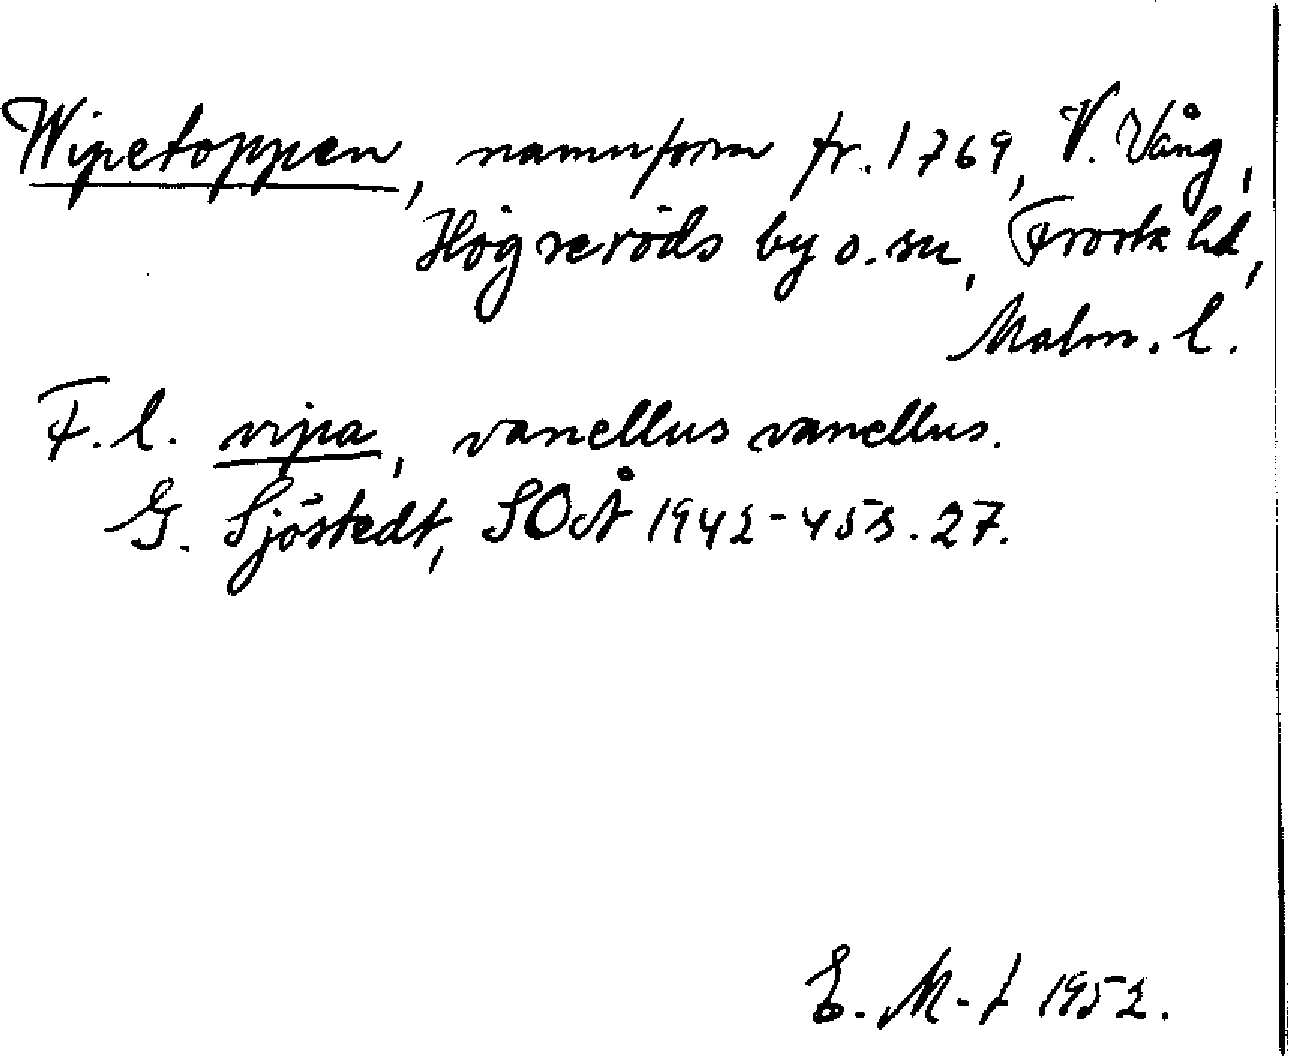 Wipetoppen, namnform fr. 1769, V. Vång,
Högseröds by o. sn, Frosta hd,
Malm. l.
F. l. vipa, vanellus vanellus.
G. Sjöstedt, SOÅ 1942-45 s. 27.
E. M-t 1952.